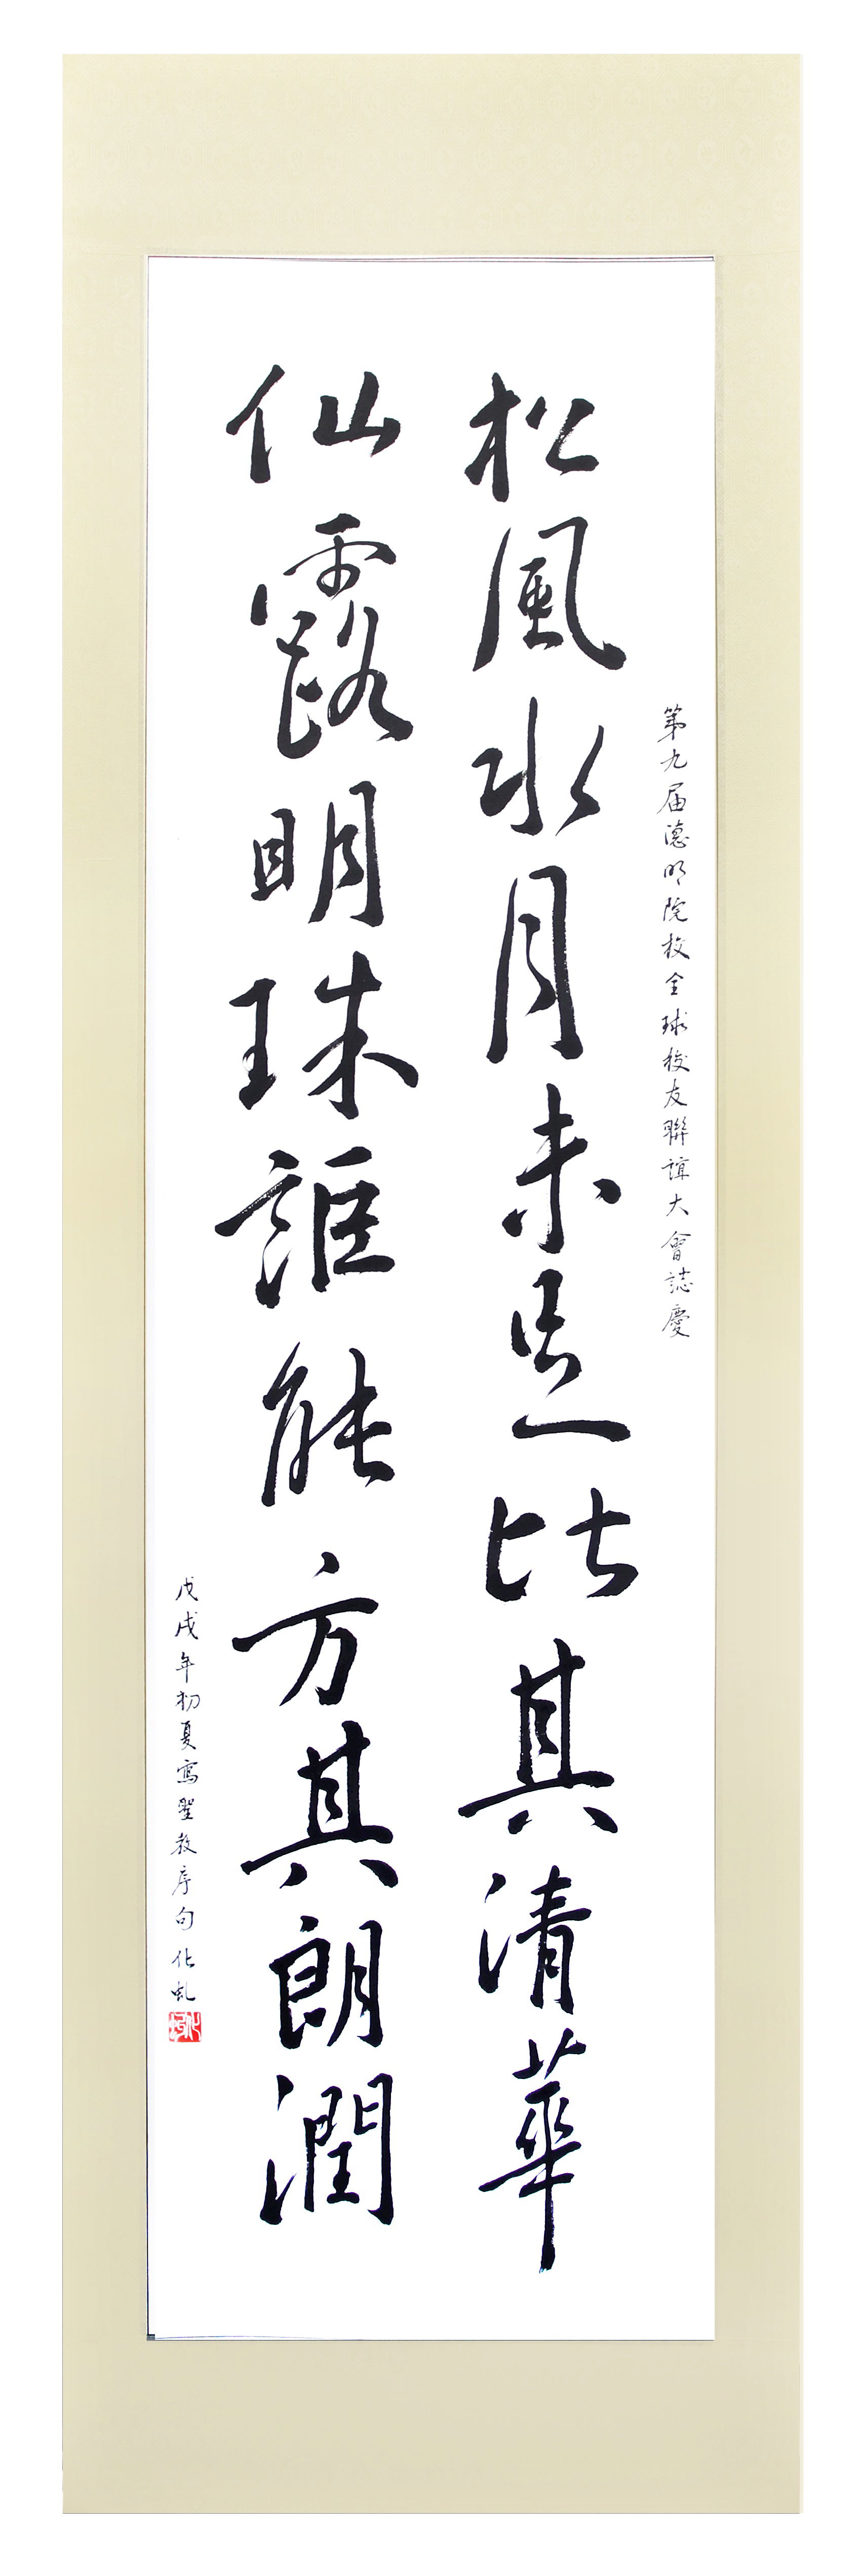 第九届德明院校全球校友聯誼大會誌慶
松風水月未足比其清華
仙露明珠詎能方其朗潤
戊戌年初夏寫聖教序句化虬